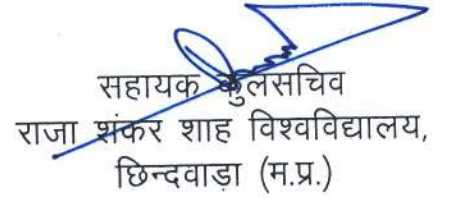 सहायक कुलसचिव
राजा शंकर शाह विश्वविद्यालय,
छिन्दवाड़ा (म.प्र.)